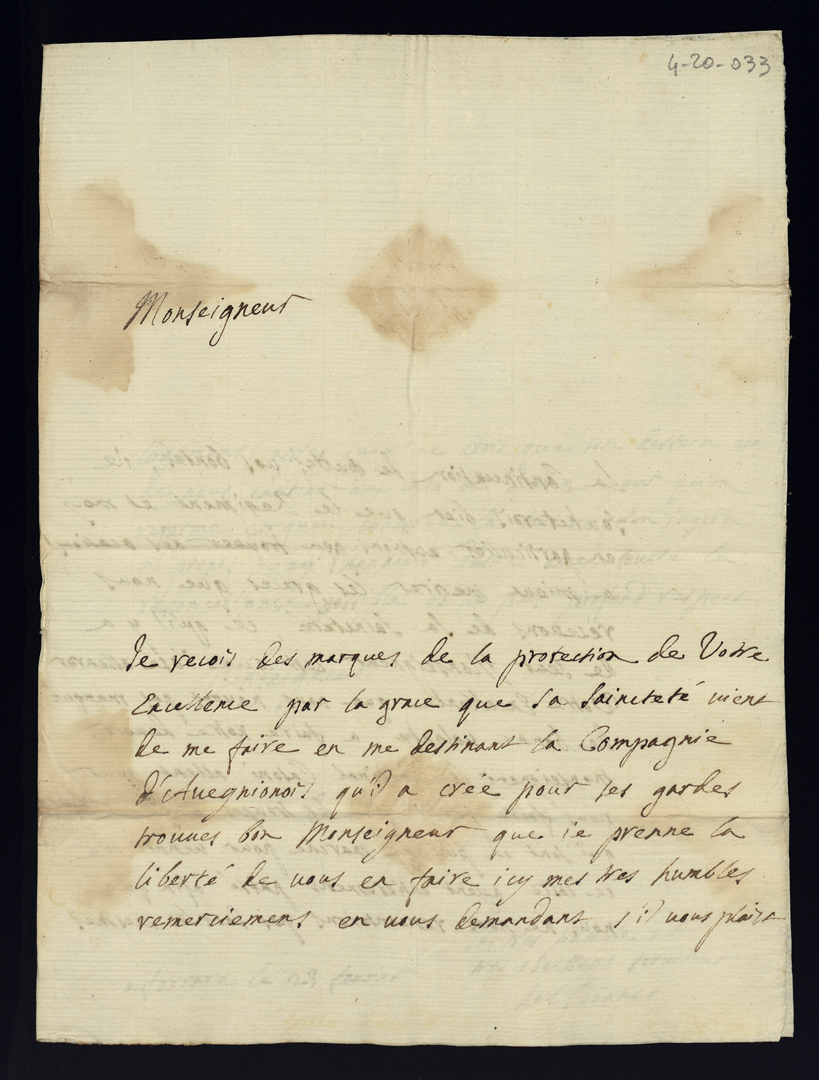 4-20-033
Monseigneur
Je recois des marques de la protection de Votre
Excellence par la grace que sa Saincteté vient
de me faire en me destinant la Compagnie
d'Avegnionois qu'il a créé pour ses gardes
trouues bon Monseigneur que ie prenne la
liberté de vous en faire icy mes tres humbles
remerciemens en vous demandant s'il vous plaist